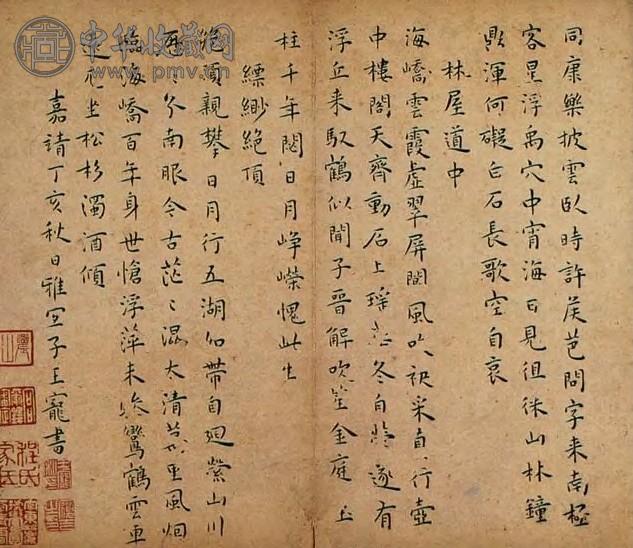 同康樂披雲臥時許侯芭問字来南極
客星浮禹穴中宵海日見徂徠山林鐘
鼎渾何礙白石長歌空自哀
林屋道中
海嶠雲霞虛翠屏閬風吹袂采行壺
中樓閣天齊動石上瑤冬自遂有
浮丘来馭鶴似聞子晉解吹笙金庭玉
柱千年閟日月崢嶸愧此生
縹緲絕頂
絕頂親攀日月行五湖如帶自迴縈山川
南眼今古茫〻混太清風烟
海嶠百年身世愴浮萍未鸞鶴雲車
坐松杉濁酒傾
嘉靖丁亥秋日雅宜子王寵書
中华收藏网
www.pmv.cn